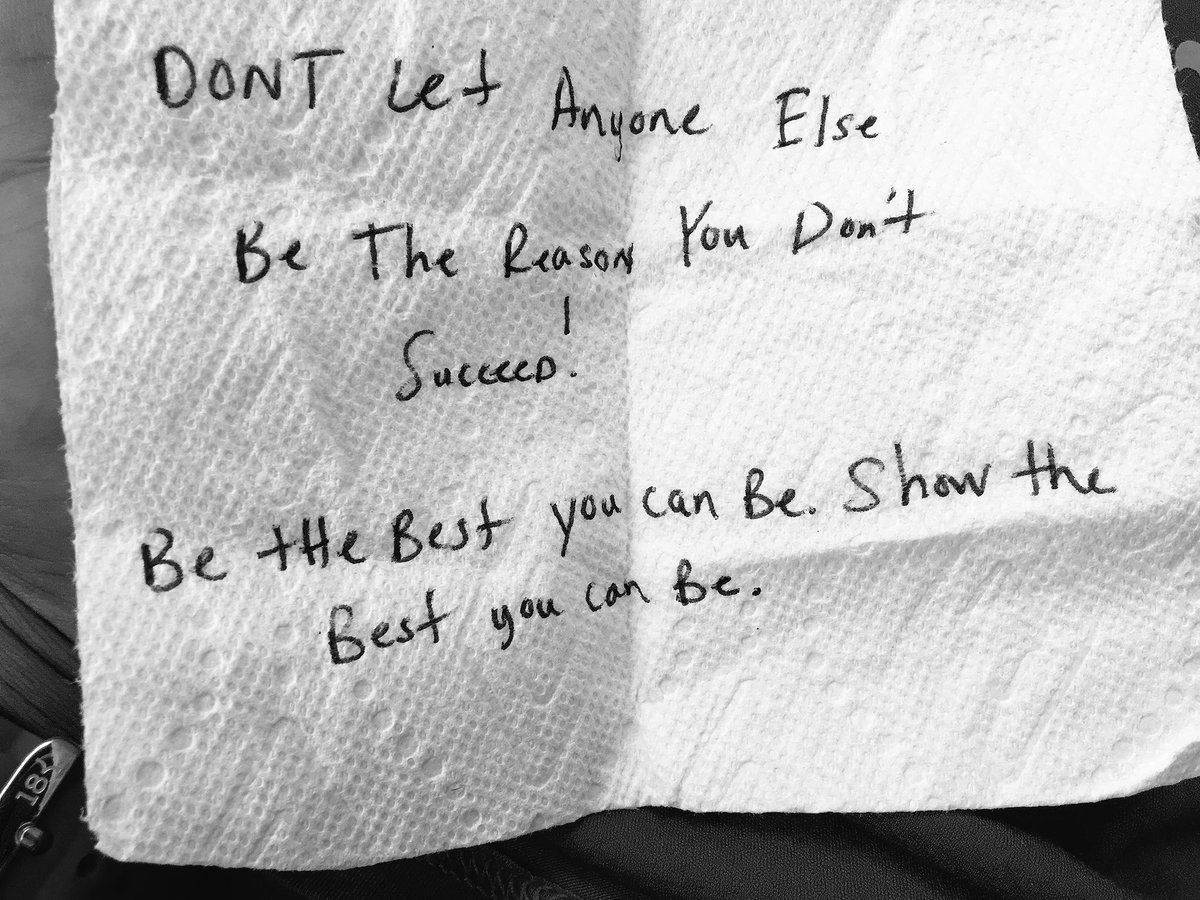 DONT Let Anyone Else
Be The Reason You Don't
Succeed!
Be tHe Best you can Be. Show the
Best you can Be.
18